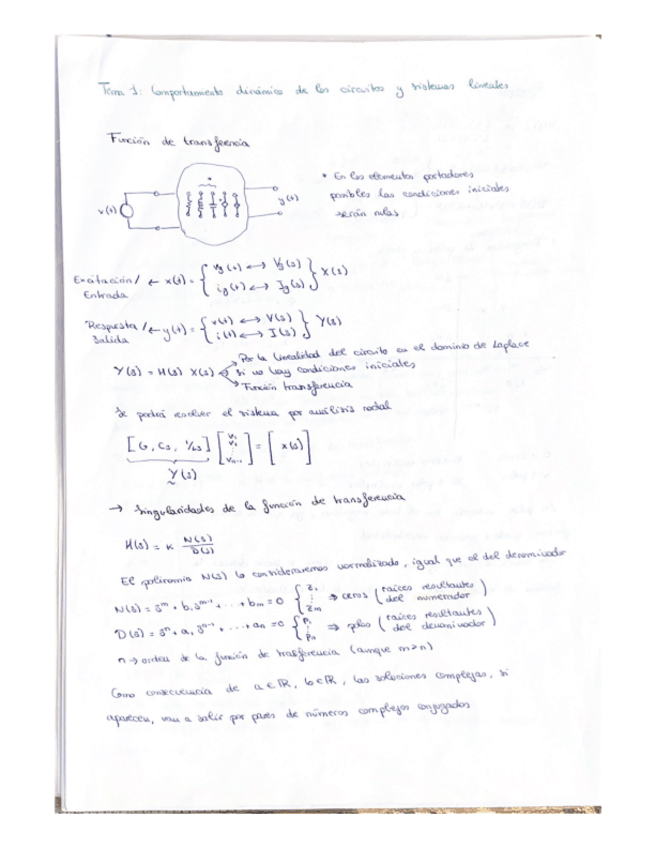 Tema 1: Comportamiento dinámico de los circuitos y sistemas lineales
Función de transferencia
• En los elementos portadores
posibles las condiciones iniciales
serán nulas
v(t)
y(t)
Excitación/ ← x(t) = { vg(t) ↔ Vg(s) } X(s)
Entrada { ig(t) ↔ Ig(s) }
Respuesta/ ← y(t) = { v(t) ↔ V(s) } Y(s)
Salida { i(t) ↔ I(s) }
Por la linealidad del circuito en el dominio de Laplace
Y(s) = H(s) X(s) si no hay condiciones iniciales
Función transferencia
Se podrá resolver el sistema por análisis nodal
[G, Cs, 1/Ls] [V1 V2 ⋮ Vn-1] = [x(s)]
Y(s)
→ Singularidades de la función de transferencia
H(s) = K N(s)/D(s)
El polinomio N(s) lo consideraremos normalizado, igual que el del denominador
N(s) = s^m + b1 s^m-1 + ... + bm = 0 { z1 ⋮ zm ⇒ ceros (raíces resultantes del numerador)
D(s) = s^n + a1 s^n-1 + ... + an = 0 { p1 ⋮ pn ⇒ polos (raíces resultantes del denominador)
n → orden de la función de trasferencia (aunque m>n)
Como consecuencia de a∈ℝ, b∈ℝ, las soluciones complejas, si
aparecen, van a salir por pares de números complejos conjugados